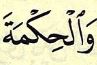 وَٱلْحِكْمَةَ